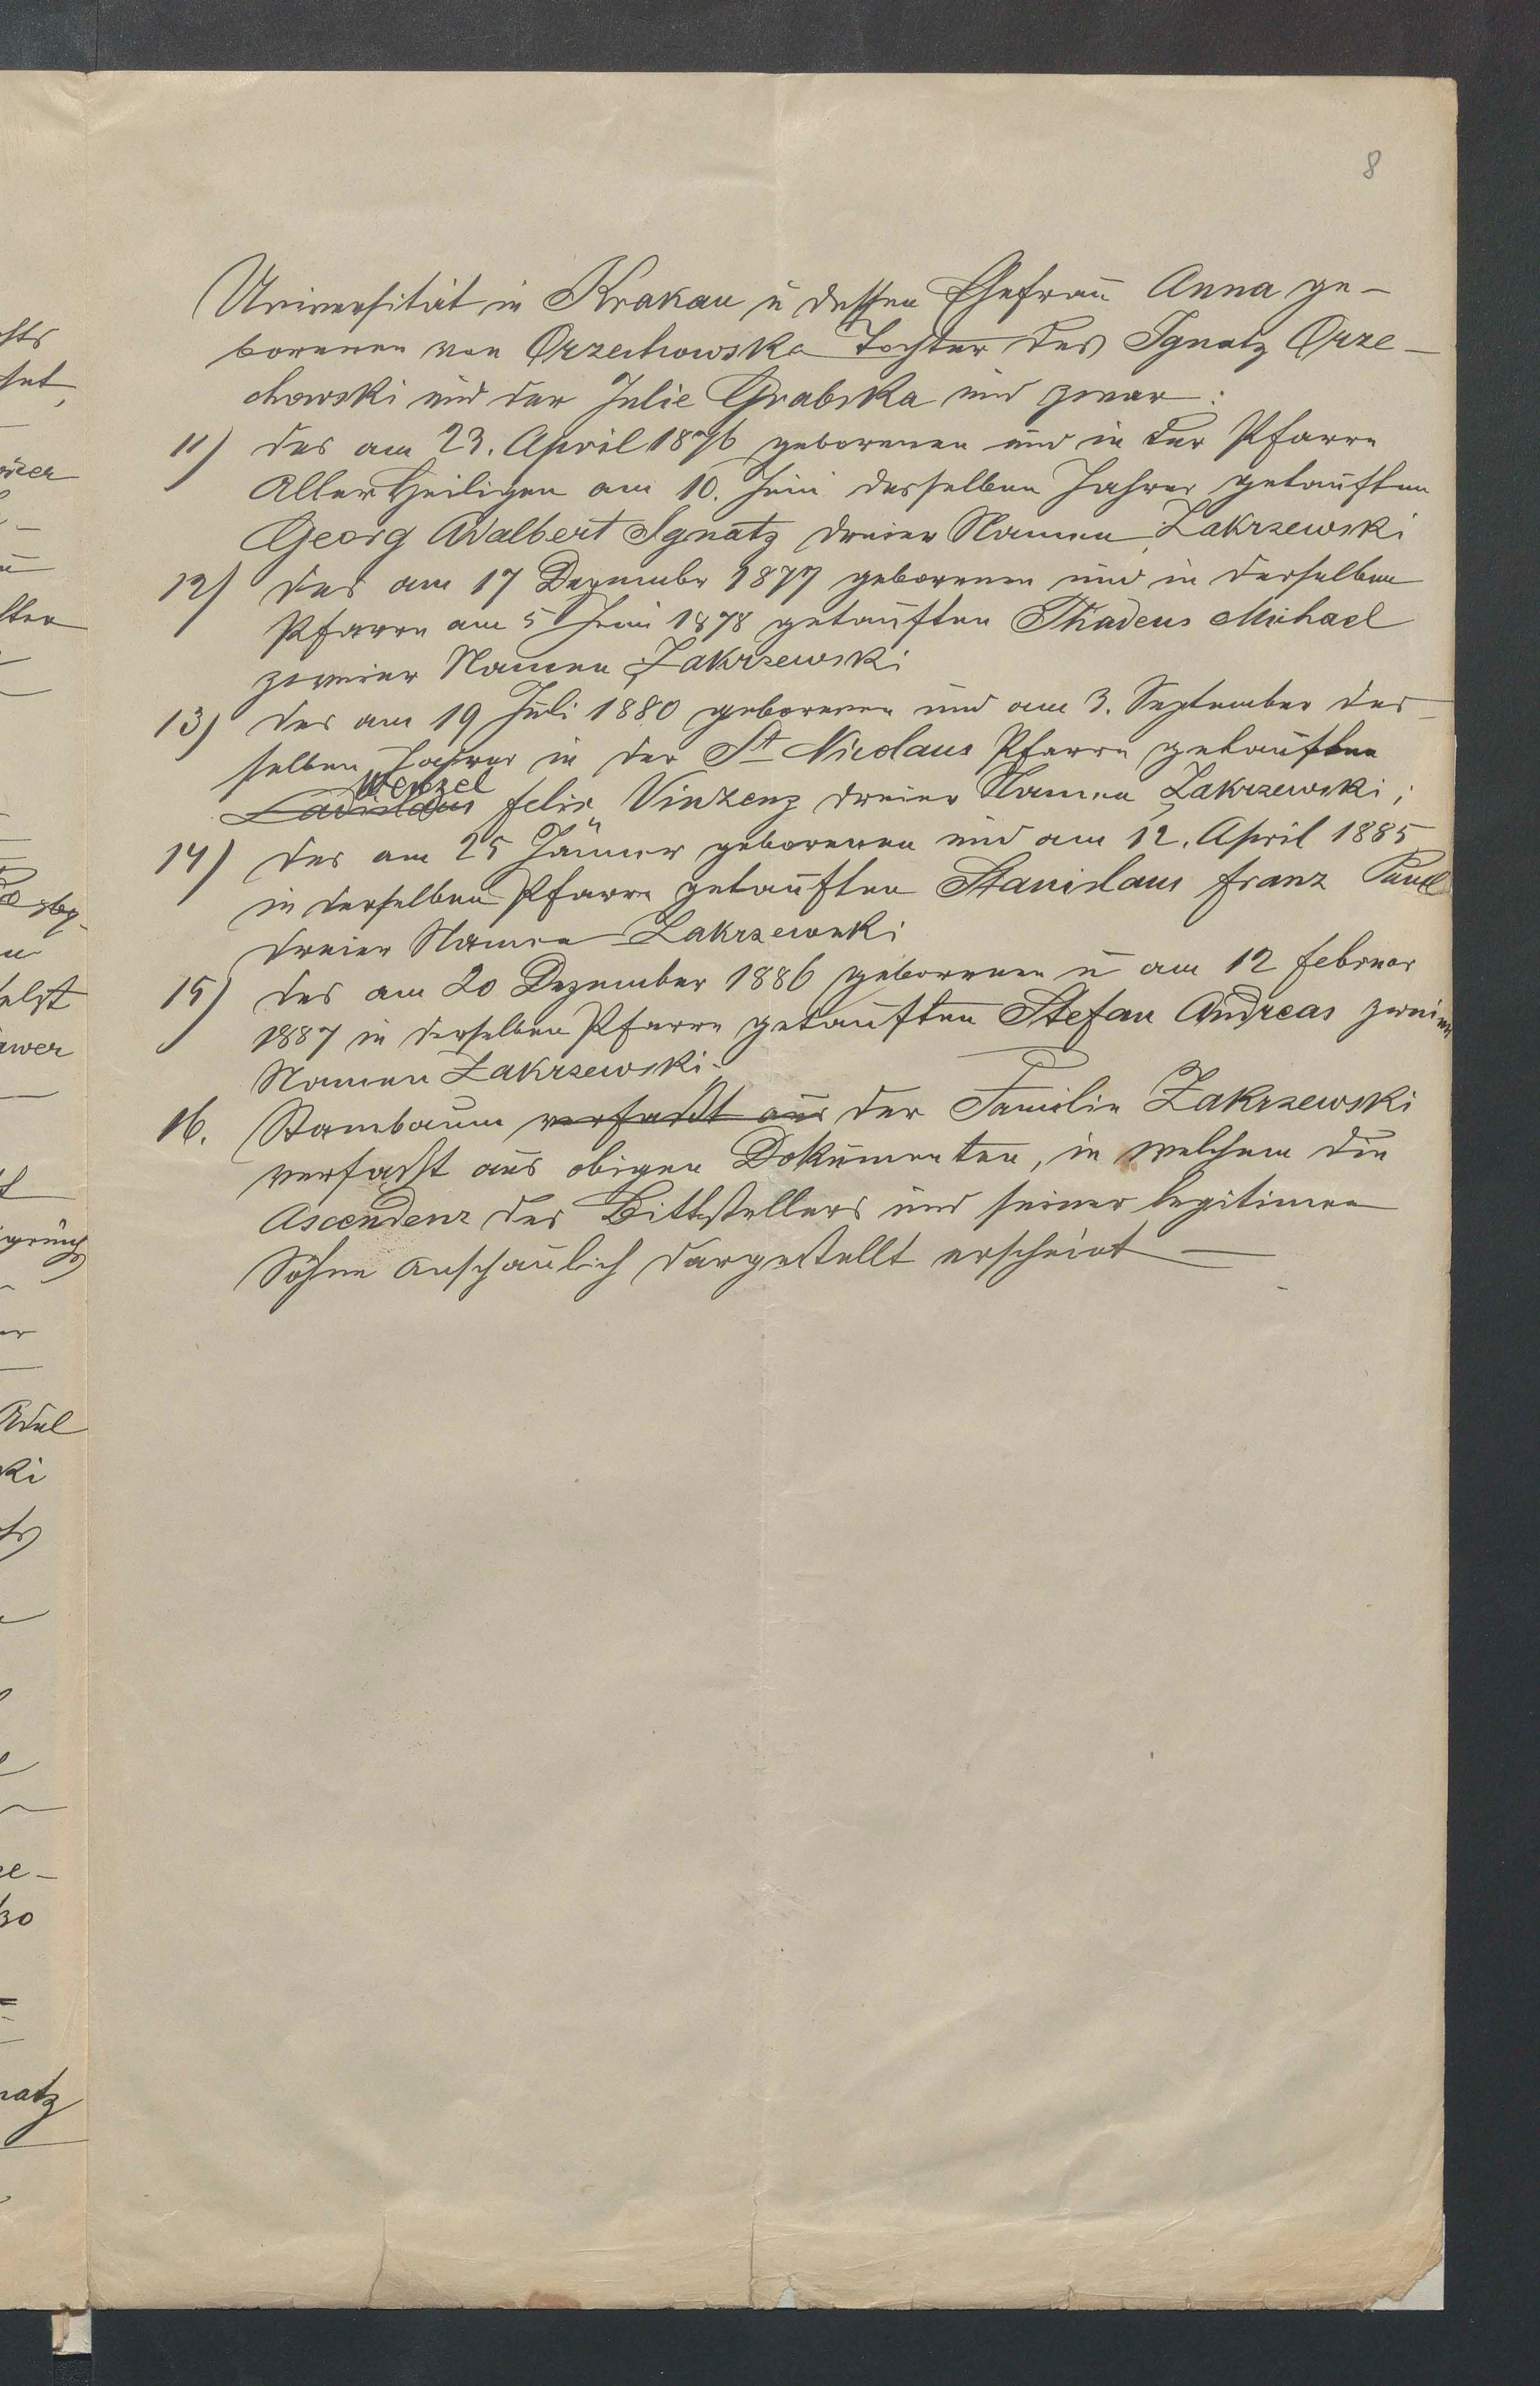 8
Universität in Krakau u dessen Ehefrau Anna ge-
borenen von Orzechowska Tochter des Ignatz Orze-
chowski und der Julie Grabska und zwar:
11) des am 23. April 1876 geborenen und in der Pfarre
Aller Heiligen am 10. Juni desselben Jahres getauften
Georg Adalbert Ignatz dreier Namen Zakrzewski
12) des am 17 Dezember 1877 geborenen und in derselben
Pfarre am 5 Juni 1878 getauften Thadeus Michael
zweier Namen Zakrzewski
13) des am 19 Juli 1880 geborenen und am 3. September des-
selben Jahres in der St Nicolaus Pfarre getauften
Wenzel
Ladislaus Felix Vinzenz dreier Namen Zakrzewski;
14) des am 25 Jänner geborenen und am 12. April 1885
in derselben Pfarre getauften Stanislaus Franz Paul
dreier Namen Zakrzewski
15) des am 20 Dezember 1886 geborenen u am 12 Februar
1887 in derselben Pfarre getauften Stefan Andreas zweier
Namen Zakrzewski.
16. Stambaum verfaßt aus der Familie Zakrzewski
verfaßt aus obigen Dokumenten, in welchem die
Ascendenz des Bittstellers und seiner legitimen
Söhne anschaulich dargestellt erscheint —